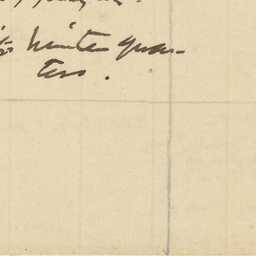 to Winter quar-
ters.